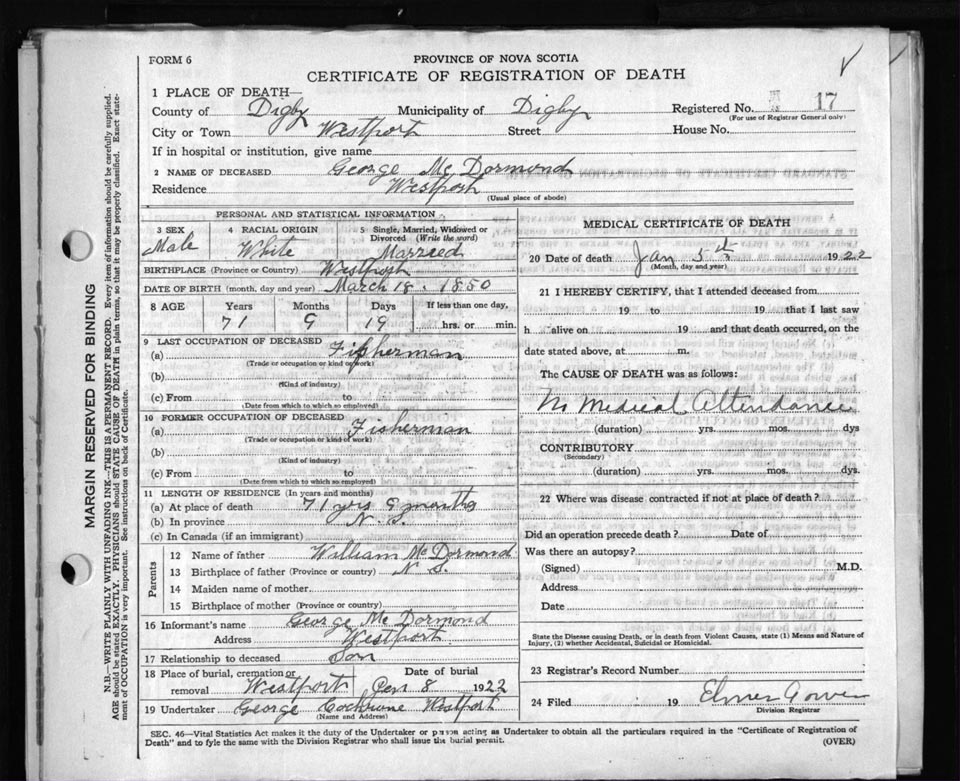 FORM 6
PROVINCE OF NOVA SCOTIA
CERTIFICATE OF REGISTRATION OF DEATH
1 PLACE OF DEATH—
County of Digby Municipality of Digby Registered No. 17
(For use of Registrar General only)
City or Town Westport Street House No.
If in hospital or institution, give name
2 NAME OF DECEASED George Mc Dormond
Residence Westport
(Usual place of abode)
PERSONAL AND STATISTICAL INFORMATION
3 SEX 4 RACIAL ORIGIN 5 Single, Married, Widowed or Divorced (Write the word)
Male White Married
BIRTHPLACE (Province or Country) Westport
DATE OF BIRTH (month, day and year) March 18. 1850
8 AGE Years Months Days If less than one day,
71 9 19 hrs. or min.
9 LAST OCCUPATION OF DECEASED
(a) Fisherman
(Trade or occupation or kind of work)
(b)
(Kind of industry)
(c) From to
(Date from which to which so employed)
10 FORMER OCCUPATION OF DECEASED
(a) Fisherman
(Trade or occupation or kind of work)
(b)
(Kind of industry)
(c) From to
(Date from which to which so employed)
11 LENGTH OF RESIDENCE (In years and months)
(a) At place of death 71 yrs 9 months
(b) In province N. S.
(c) In Canada (if an immigrant)
Parents
12 Name of father William Mc Dormond
13 Birthplace of father (Province or country) N S.
14 Maiden name of mother
15 Birthplace of mother (Province or country)
16 Informant's name George Mc Dormond
Address Westport
17 Relationship to deceased Son
18 Place of burial, cremation or removal Westport Date of burial 8 1922
19 Undertaker George Cochrane Westport
(Name and Address)
MEDICAL CERTIFICATE OF DEATH
20 Date of death Jan 5th 1922
(Month, day and year)
21 I HEREBY CERTIFY, that I attended deceased from
19 to 19 that I last saw
h alive on 19 and that death occurred, on the
date stated above, at m.
The CAUSE OF DEATH was as follows:
No Medical Attendance
(duration) yrs. mos. dys
CONTRIBUTORY
(Secondary)
(duration) yrs. mos. dys.
22 Where was disease contracted if not at place of death?
Did an operation precede death? Date of
Was there an autopsy?
(Signed) M.D.
Address
Date
State the Disease causing Death, or in death from Violent Causes, state (1) Means and Nature of
Injury, (2) whether Accidental, Suicidal or Homicidal.
23 Registrar's Record Number
24 Filed 19 Elmer Gower
Division Registrar
SEC. 46—Vital Statistics Act makes it the duty of the Undertaker or person acting as Undertaker to obtain all the particulars required in the "Certificate of Registration of
Death" and to fyle the same with the Division Registrar who shall issue the burial permit.
(OVER)
MARGIN RESERVED FOR BINDING
N.B.—WRITE PLAINLY WITH UNFADING INK—THIS IS A PERMANENT RECORD. Every item of information should be carefully supplied.
AGE should be stated EXACTLY. PHYSICIANS should STATE CAUSE OF DEATH in plain terms, so that it may be properly classified. Exact state-
ment of OCCUPATION is very important. See instructions on back of Certificate.